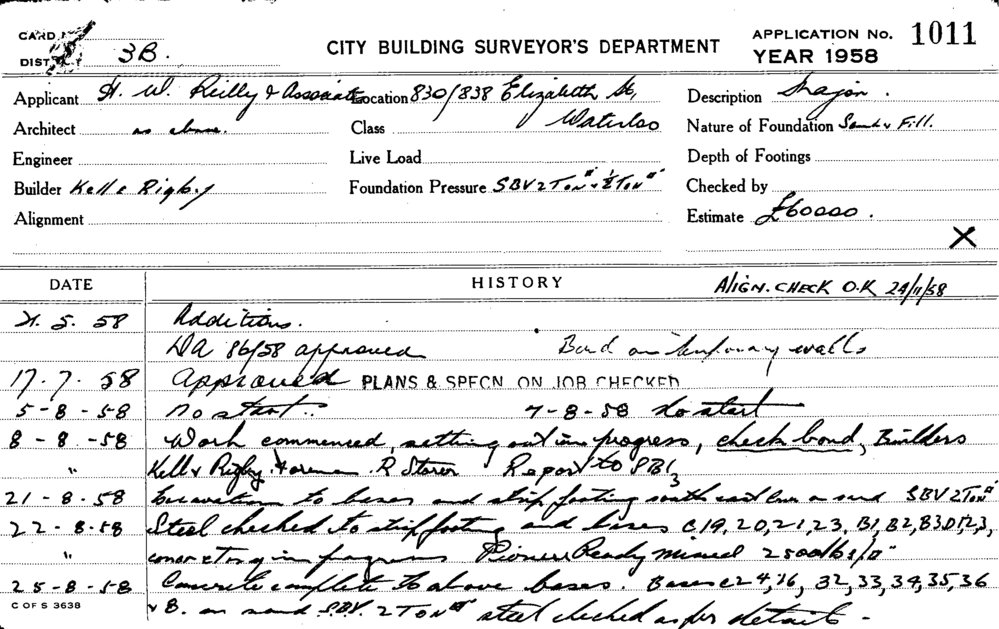 CARD No.
DIST. 3B. CITY BUILDING SURVEYOR'S DEPARTMENT APPLICATION No. 1011
YEAR 1958
Applicant H. W. Reilly & Associates Location 830/838 Elizabeth St, Description Major.
Waterloo
Architect as above. Class Nature of Foundation Sand & Fill.
Engineer Live Load Depth of Footings
Builder Kell & Rigby Foundation Pressure SBV 2 Ton□" & ½ Ton□" Checked by
Alignment Estimate £60000.
X
DATE HISTORY ALIGN. CHECK O.K 24/11/58
5. 58 Additions.
DA 86/58 approved Bond on temporary walls
17. 7. 58 Approved PLANS & SPECN ON JOB CHECKED
5-8-58 No start. 7-8-58 No start
8-8-58 Work commenced, setting out in progress, check bond, Builders
" Kell & Rigby Foreman R Report to SBI 3
21-8-58 Excavation to bases and strip footing south east on sand SBV 2 Ton□"
22-8-58 Steel checked to strip footing and bases C19, 20, 21, 23, B1, B2, B3
" concreting in progress Pioneer Ready mixed 2500lbs/□"
25-8-58 Concrete complete to above bases. Bases 32, 33, 34, 35, 36
C OF S 3638 & 8. on sand SBV. 2 TON□" steel checked as per details -